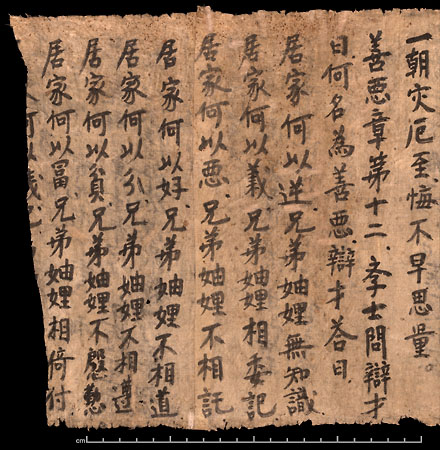 一朝灾厄至悔不早思量。
善惡章第十二 李士問辯才
曰何名為善惡辯才荅曰
居家何以逆兄弟妯娌無知識
居家何以義兄弟妯娌相委記
居家何以惡兄弟妯娌不相託
居家何以好兄弟妯娌不相道
居家何以分兄弟妯娌不相遵
居家何以貧兄弟妯娌不慇懃
居家何以冨兄弟妯娌相倚付
何以義
cm